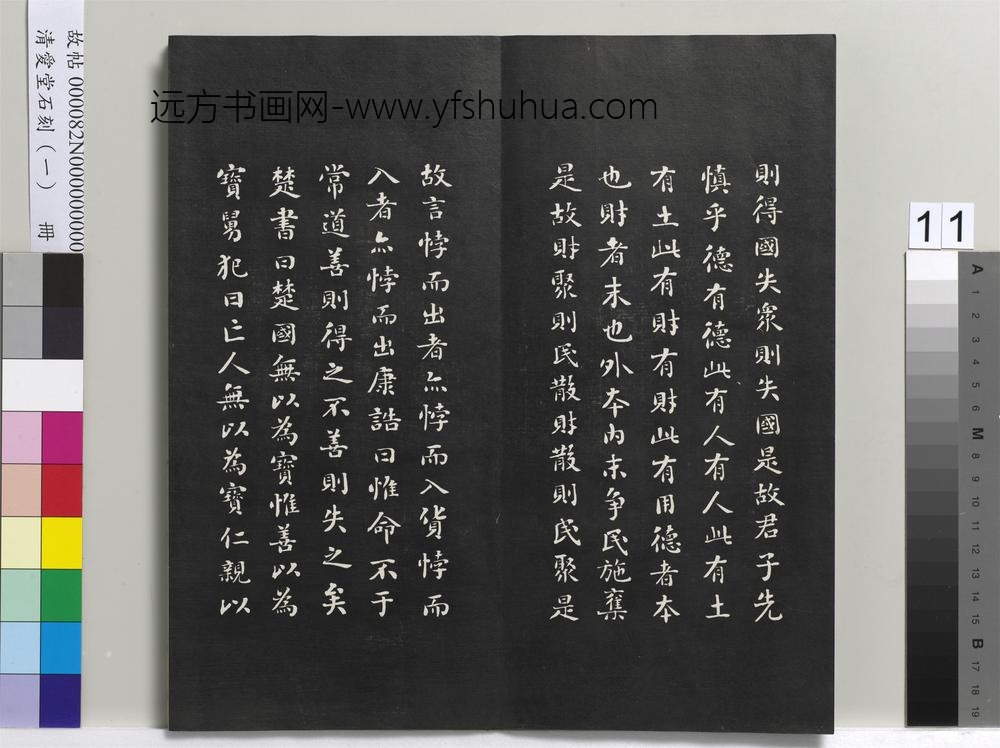 則得國失衆則失國是故君子先
慎乎德有德此有人有人此有土
有土此有財有財此有用德者本
也財者末也外本内末争民施奪
是故財聚則民散財散則民聚是
故言悖而出者亦悖而入貨悖而
入者亦悖而出康誥曰惟命不于
常道善則得之不善則失之矣
楚書曰楚國無以為寶惟善以為
寶舅犯曰亡人無以為寶仁親以
远方书画网-www.yfshuhua.com
故帖 000082N000000000
清愛堂石刻（一） 冊
11
A 1 2 3 4 5 6 M 8 9 10 11 12 13 14 15 B 17 18 19